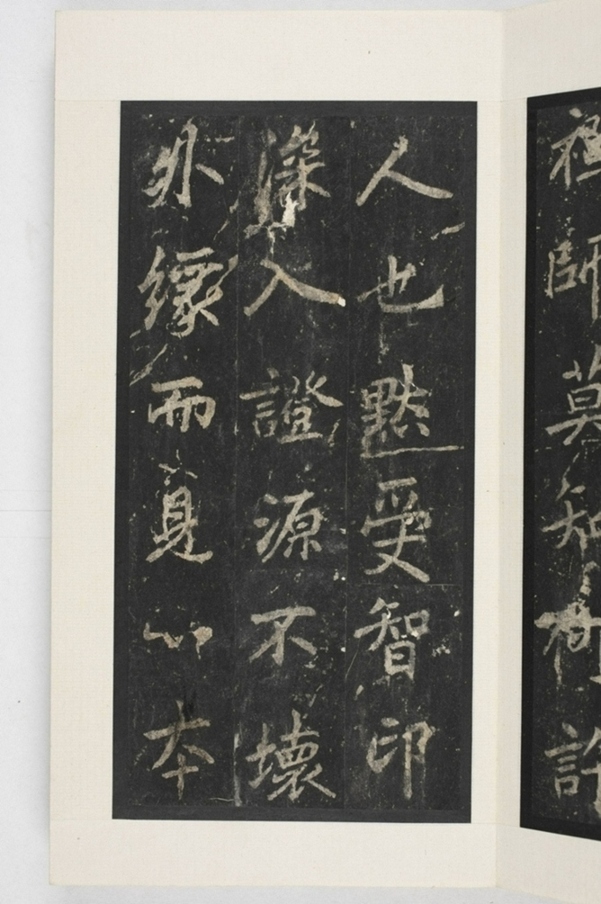 禪師莫知何許
人也默受智印
深入證源不壞
外緣而見心本